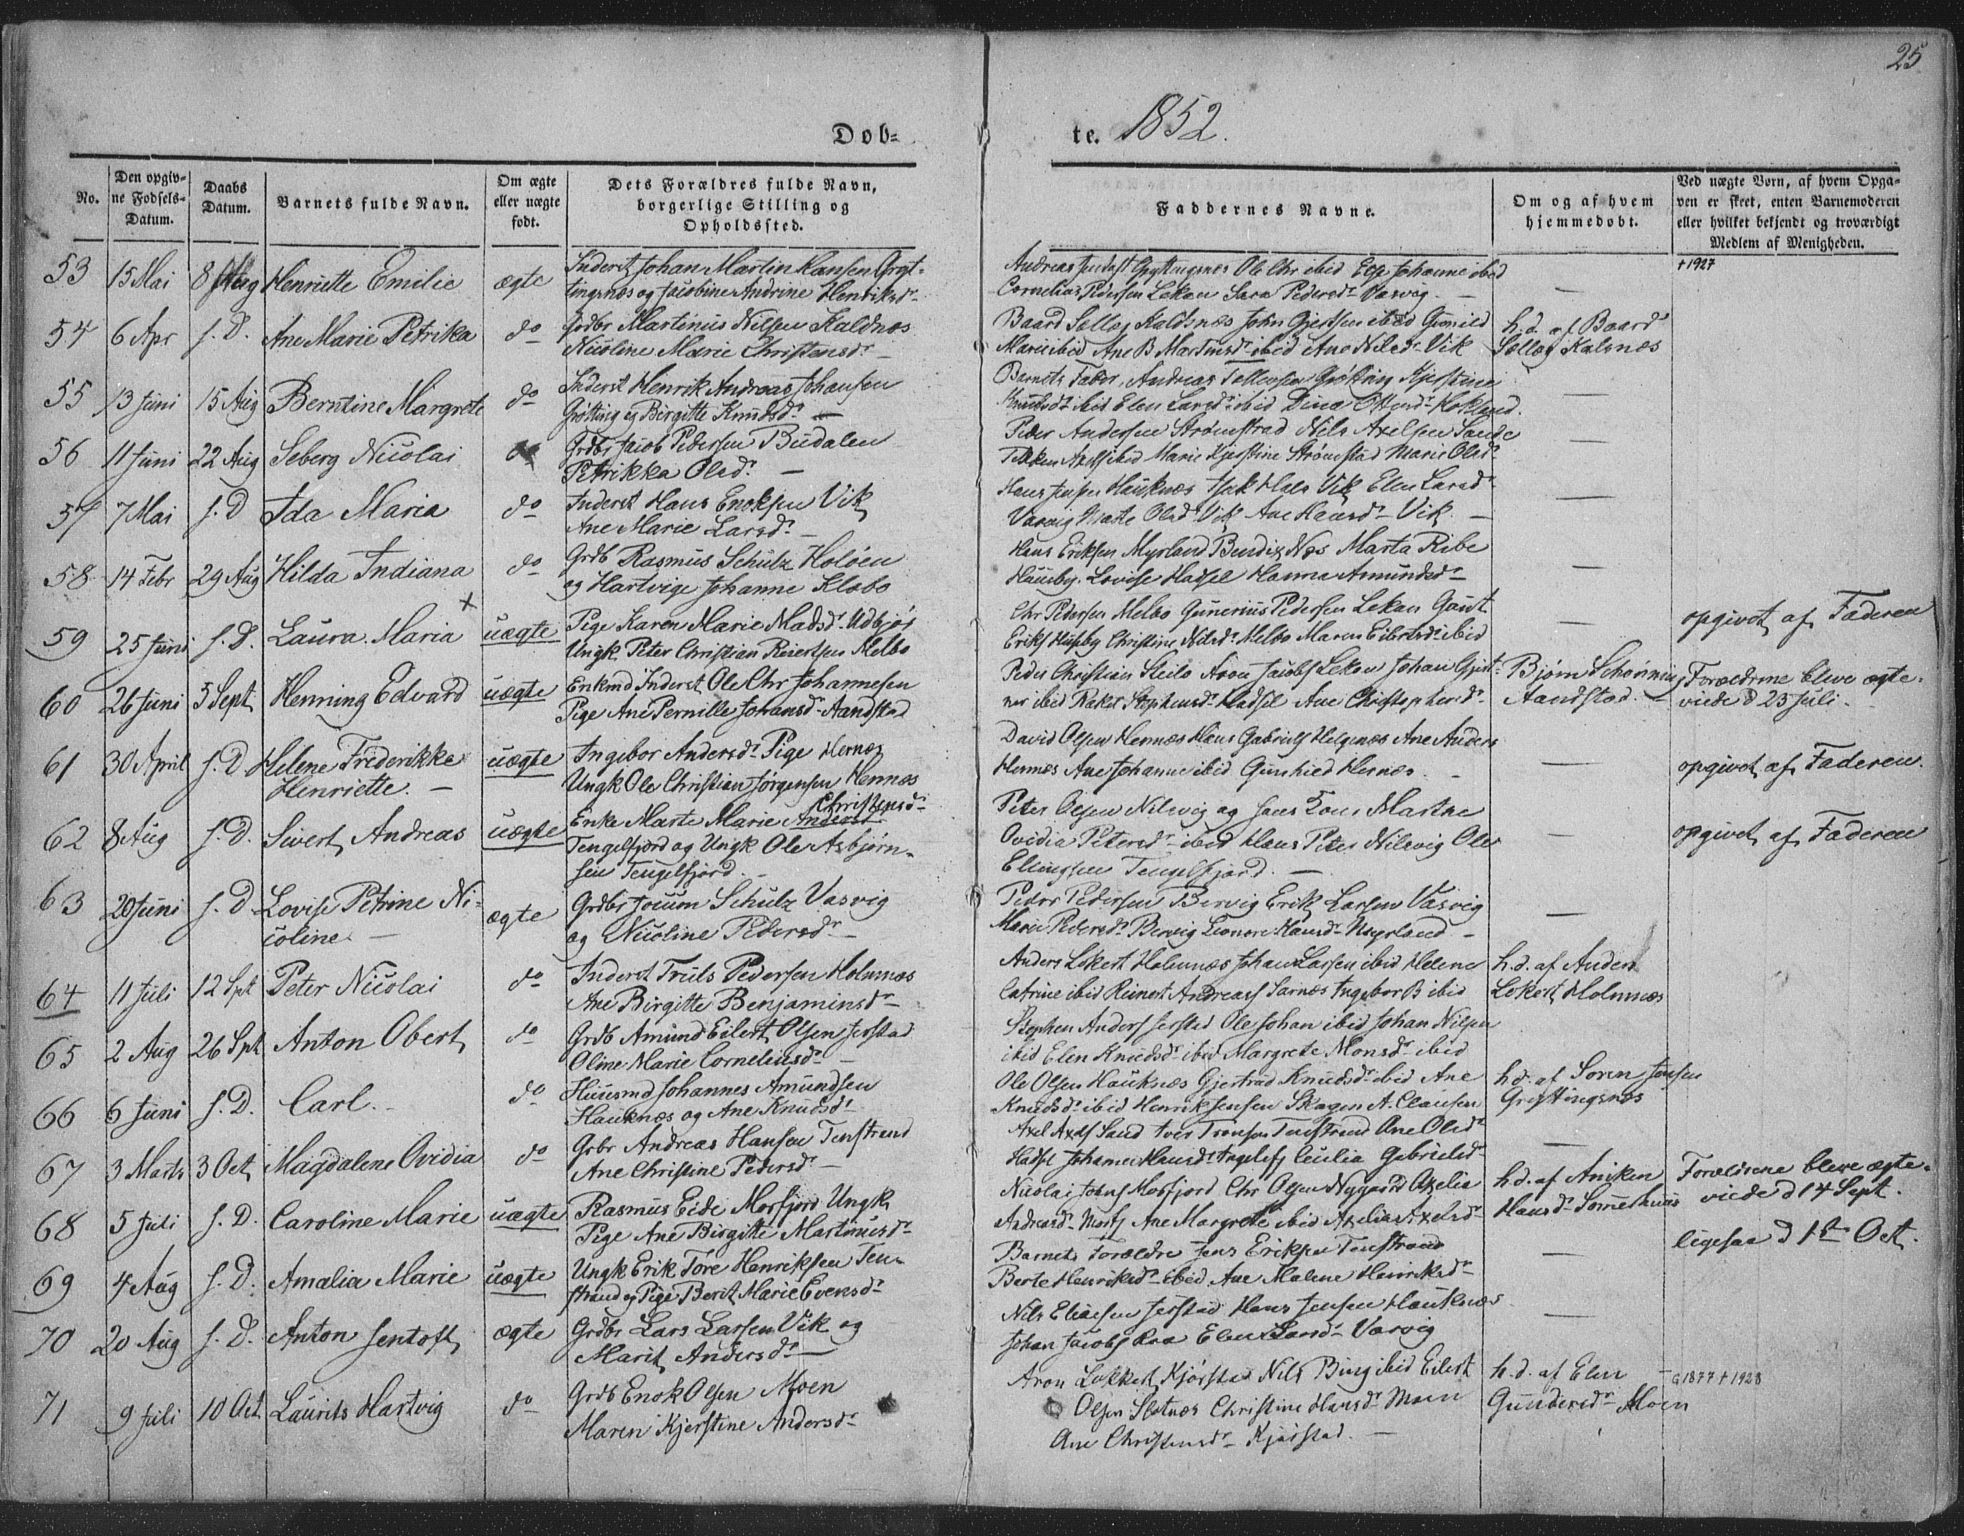 25
Dob-
te. 1852.
No.
Den opgiv-
ne Fodsels-
Datum.
Daabs
Datum.
Barnets fulde Navn.
Om ægte
eller uægte
født.
Dets Forældres fulde Navn,
borgerlige Stilling og
Opholdssted.
Faddernes Navne.
Om og af hvem
hjemmedøbt.
Ved uægte Børn, af hvem Opga-
ven er skeet, enten Barnemoderen
eller hvilket bekjendt og troværdigt
Medlem af Menigheden.
53 15 Mai 8 Aug Henriette Emilie ægte Inderst Johan Martin Hansen Gryt-
tingsnæs og Jacobine Andrine Henriksdr
Andreas Gryttingsnæs Ole Chr ibid Else Johanne ibid
Cornelius Pedersen Lekan Sara Pedersdr Vasvig. —
— † 1927
54 6 Apr s. D. Ane Marie Petrika do Grdbr Martinus Nilsen Kaldnæs
Nicoline Marie Christensdr —
Baard Sellæg Kaldsnæs John Gjertsen ibid Gunild
Marie ibid Ane B Martinsdr ibid Ane Nilsdr Vik
h. d. af Baard
Sellæg Kalsnæs
55 13 Juni 15 Aug Berntine Margrete do Inderst Henrik Andreas Johansen
Grötting og Birgitte Knudsdr —
Barnets Fader, Andreas Tellevsen Grøtting Kjerstine
Knudsdr ibid Elen Larsdr ibid Dina Hokland.
—
56 11 Juni 22 Aug Seberg Nicolai do Grdbr Jacob Pedersen Budalen
Petrikka Olsdr. —
Peder Andersen Strømstad Nils Axelsen Sande
ibid Marie Kjerstine Strømstad Marie Olsdr
—
57 7 Mai s. D Ida Maria do Inderst Hans Enoksen Vik
Ane Marie Larsdr —
Hans Jensen Hauknæs Isak Hals Vik Elen Larsdr
Vasvig Marte Olsdr Vik Ane Hansdr Vik. —
—
58 14 Febr 29 Aug Hilda Indiana do Grdb Rasmus Schulz Holøen
og Hartvige Johanne Klobo
Hans Eriksen Myrland Bendix Næs Marta Ribe
Husby. Lovise Hadsel Hanna Amundsdr
—
59 25 Juni s. D. Laura Maria × uægte Pige Karen Marie Madsdr Udbjøs
Ungk Peter Christian Reiertsen Melbo
Chr Pedersen Melbo Gunerius Pedersen Lekan Gaut
Eriks Husby Christine Nilsdr Melbo Maren ibid
— opgivet af Faderen
60 26 Juni 5 Sept Henning Edvard uægte Enkmd Inderst Ole Chr Johannesen
Pige Ane Pernille Johansdr Aandstad
Peder Christian Steilo Aron Jacobs Lekan Johan
ibid Rakel Stephensdr Hadsel Ane Christophersdr
Bjørn Schonning
Aandstad. —
Forældrene bleve ægte-
viede d 23 Juli.
61 30 April s. D Helene Friderikke
Henriette. —
uægte Ingebor Andersdr Pige Hernæs
Ungk Ole Christian Jørgensen Hernæs
David Olsen Hernæs Hans Gabriels Helgenæs Ane Anders
Hernæs Ane Johanne ibid Gunhild Hernæs. —
— opgivet af Faderen.
62 8 Aug s. D. Sivert Andreas uægte Enke Marte Marie Andersdr Christensdr
Tengelfjord og Ungk Ole Asbjørn-
sen Tengelfjord. —
Peter Olsen Nilsvig og hans Kone Martha
Ovidia Petersdr ibid Hans Peter Nilsvig Ole
Ellingsen Tengelfjord. —
— opgivet af Faderen
63 20 Juni s. D Lovise Petrine Ni-
coline. —
ægte Grdbr Joeum Schulz Vasvig
og Nicoline Pedersdr —
Peder Pedersen Bervig Erik Larsen Vasvig
Marie Pedersdr Bervig Leonore Hansdr Myrland —
—
64 11 Juli 12 Spt Peter Nicolai do Inderst Truls Pedersen Holmnæs
Ane Birgitte Benjaminsdr
Anders Lekert Holmnæs Johan Larsen ibid Helene
Catrine ibid Reinert Andreas Sarnæs Ingebor B ibid
h. d. af Anders
Lekert Holmnæs
65 2 Aug 26 Spt Anton Obert do Grdb Amund Eilert Olsen Jerstad
Oline Marie Corneliusdr —
Stephen Anders Jerstad Ole Johan ibid Johan Nilsen
ibid Elen Knudsdr ibid Margrete Monsdr ibid
66 6 Juni s. D. Carl. — do Huusmd Johannes Amundsen
Hauknæs og Ane Knudsdr
Ole Olsen Hauknæs Gjertrud Knudsdr ibid Ane
Knudsdr ibid Henrik Jensen Skagen A. Clausen
h. d. af Soren Jensen
Gryttingsnæs
67 3 Marts 3 Oct Magdalene Ovidia do Grbr Andreas Hansen Tenstrand
Ane Christine Pedersdr —
Axel Axels Sand Iver Tronsen Tenstrand Ane Olsdr
Hadsel Johanna Hansdr Cecilia Gabrielsdr
—
68 5 Juli s. D. Caroline Marie uægte Rasmus Eide Morfjord Ungk
Pige Ane Birgitte Martinusdr
Nicolai Johns Morfjord Chr Olsen Nygaard Axelia
Andreasdr Morfj Ane Margrete ibid Axelia Axelsdr
h. d. af Aniken
Hansdr
Forældrene bleve ægte-
viede d 14 Sept.
69 4 Aug s. D. Amalia Marie uægte Ungk Erik Tore Henriksen Ten-
strand og Pige Berit Marie Evensdr
Barnets Forældre Jens Eriksen Tenstrand
Berte Henriksdr ibid. Ane Malene Henriksdr
— ligesaa d 1ste Oct.
70 20 Aug s. D. Anton Jentoft ægte Grdbr Lars Larsen Vik og
Marit Andersdr —
Nils Eliaesen Jerstad Hans Jensen Hauknæs
Johan Jacobs Raa Elen Larsdr Vasvig
—
71 9 Juli 10 Oct Laurits Hartvig do Grdb Enok Olsen Moen
Maren Kjerstine Andersdr
Aron Lekkert Kjørstad Nils Bing ibid Eilert
Olsen Slotnæs Christine Hansdr Moen
Ane Christensdr Kjørstad. —
h. d. af Elen
Gundersdr Moen
G 1877 † 1928